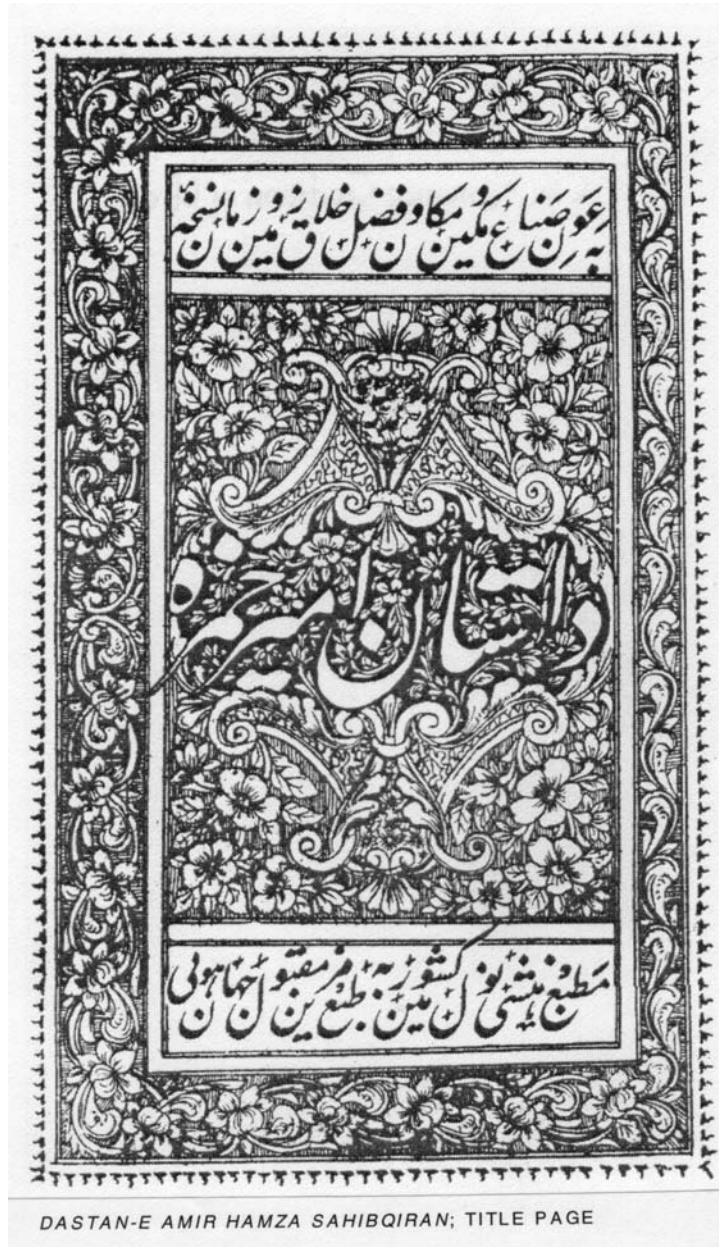 بہ عون صناع مکین و مکان و فضل خلاق زمین و زمان نسخۂ
داستان امیر حمزہ
مطبع منشی نول کشور میں بہ طبع مزین مقبول جہان ہوئی
DASTAN-E AMIR HAMZA SAHIBQIRAN; TITLE PAGE